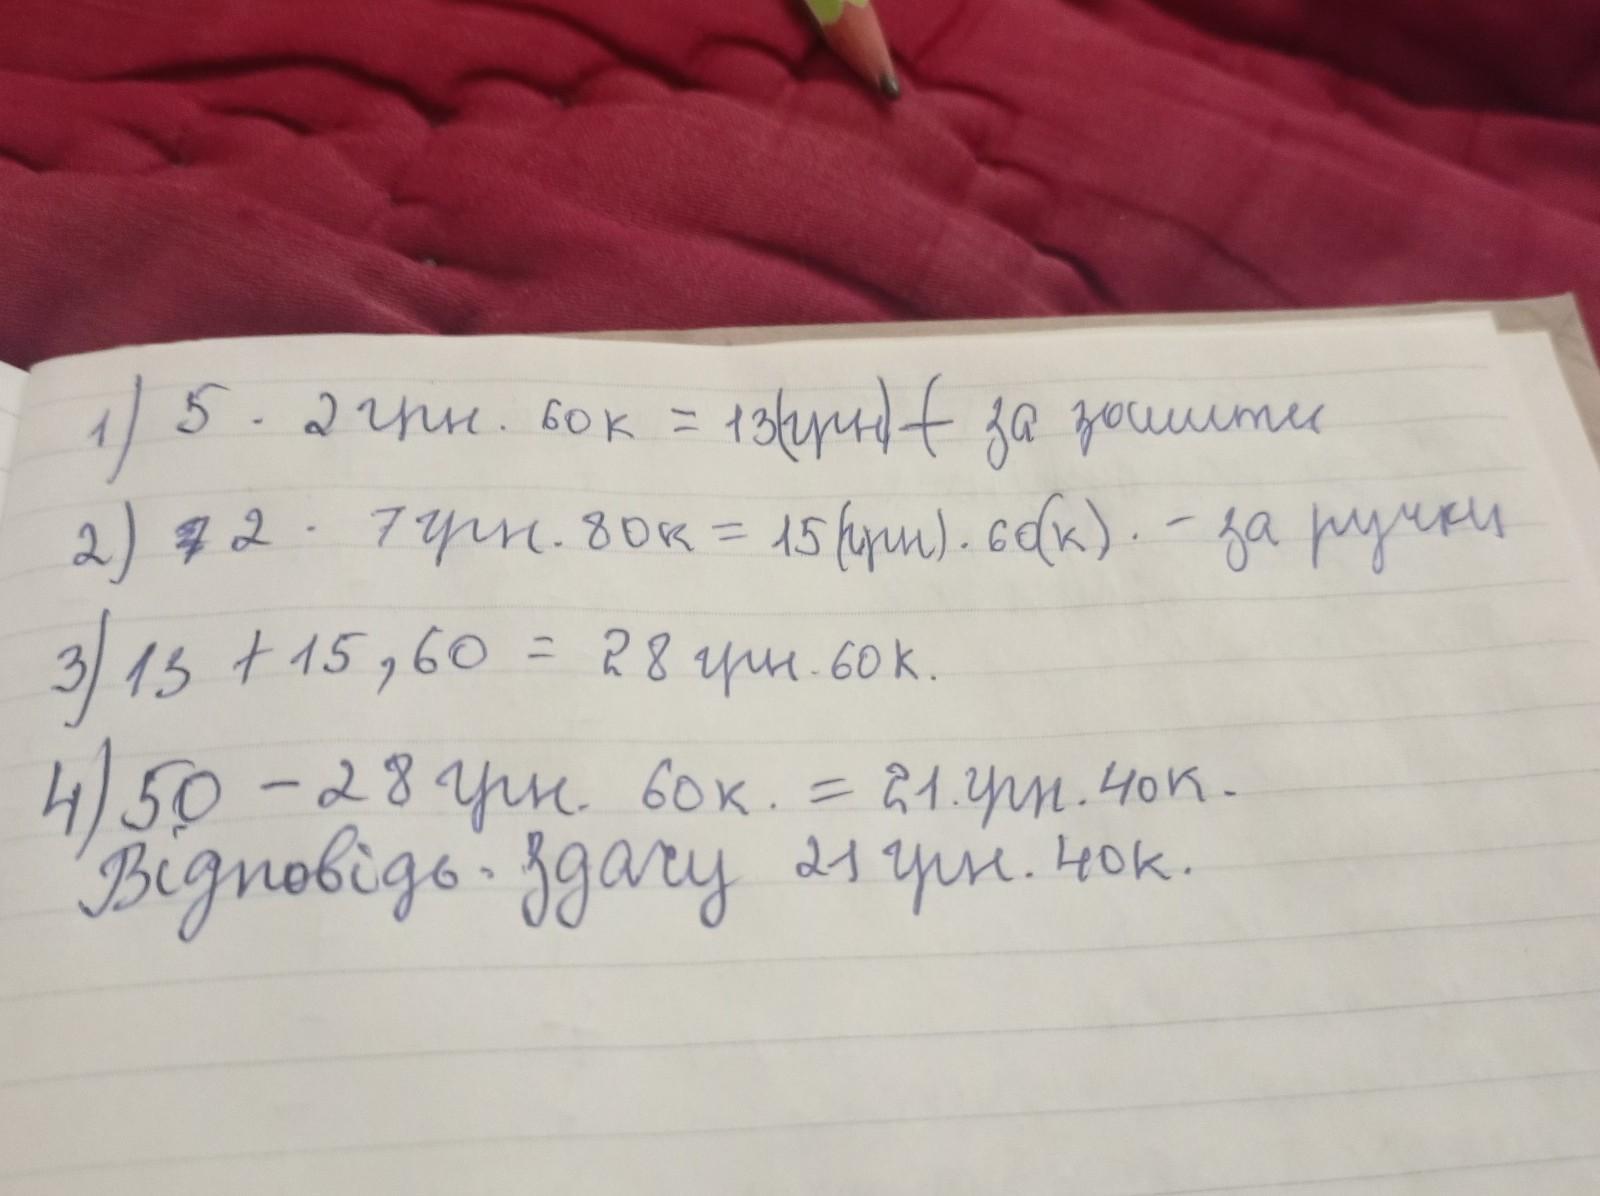 1) 5 · 2 грн. 60к = 13(грн) - за зошити
2) 2 · 7 грн. 80к = 15(грн). 60(к). - за ручки
3) 13 + 15,60 = 28 грн. 60к.
4) 50 - 28 грн. 60к. = 21.грн. 40к.
Відповідь. здачу 21 грн. 40к.